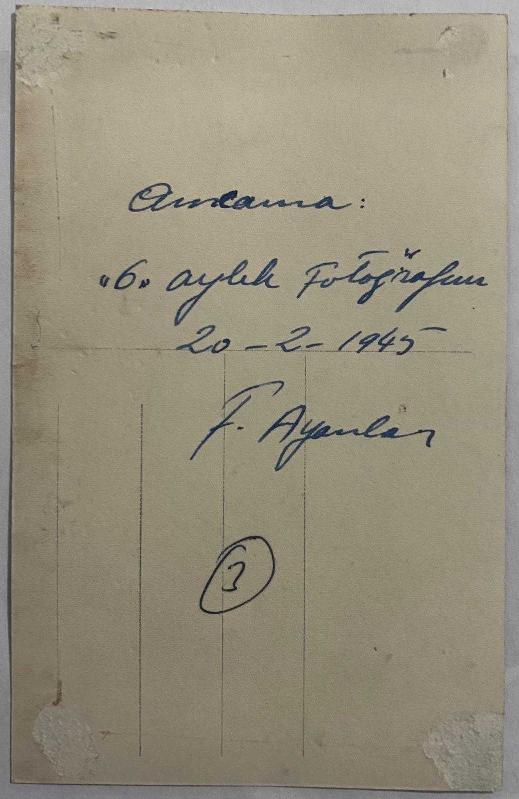 Anneanna:
"6" aylık Fotoğrafım
20 - 2 - 1945
F. Ayanlar
3